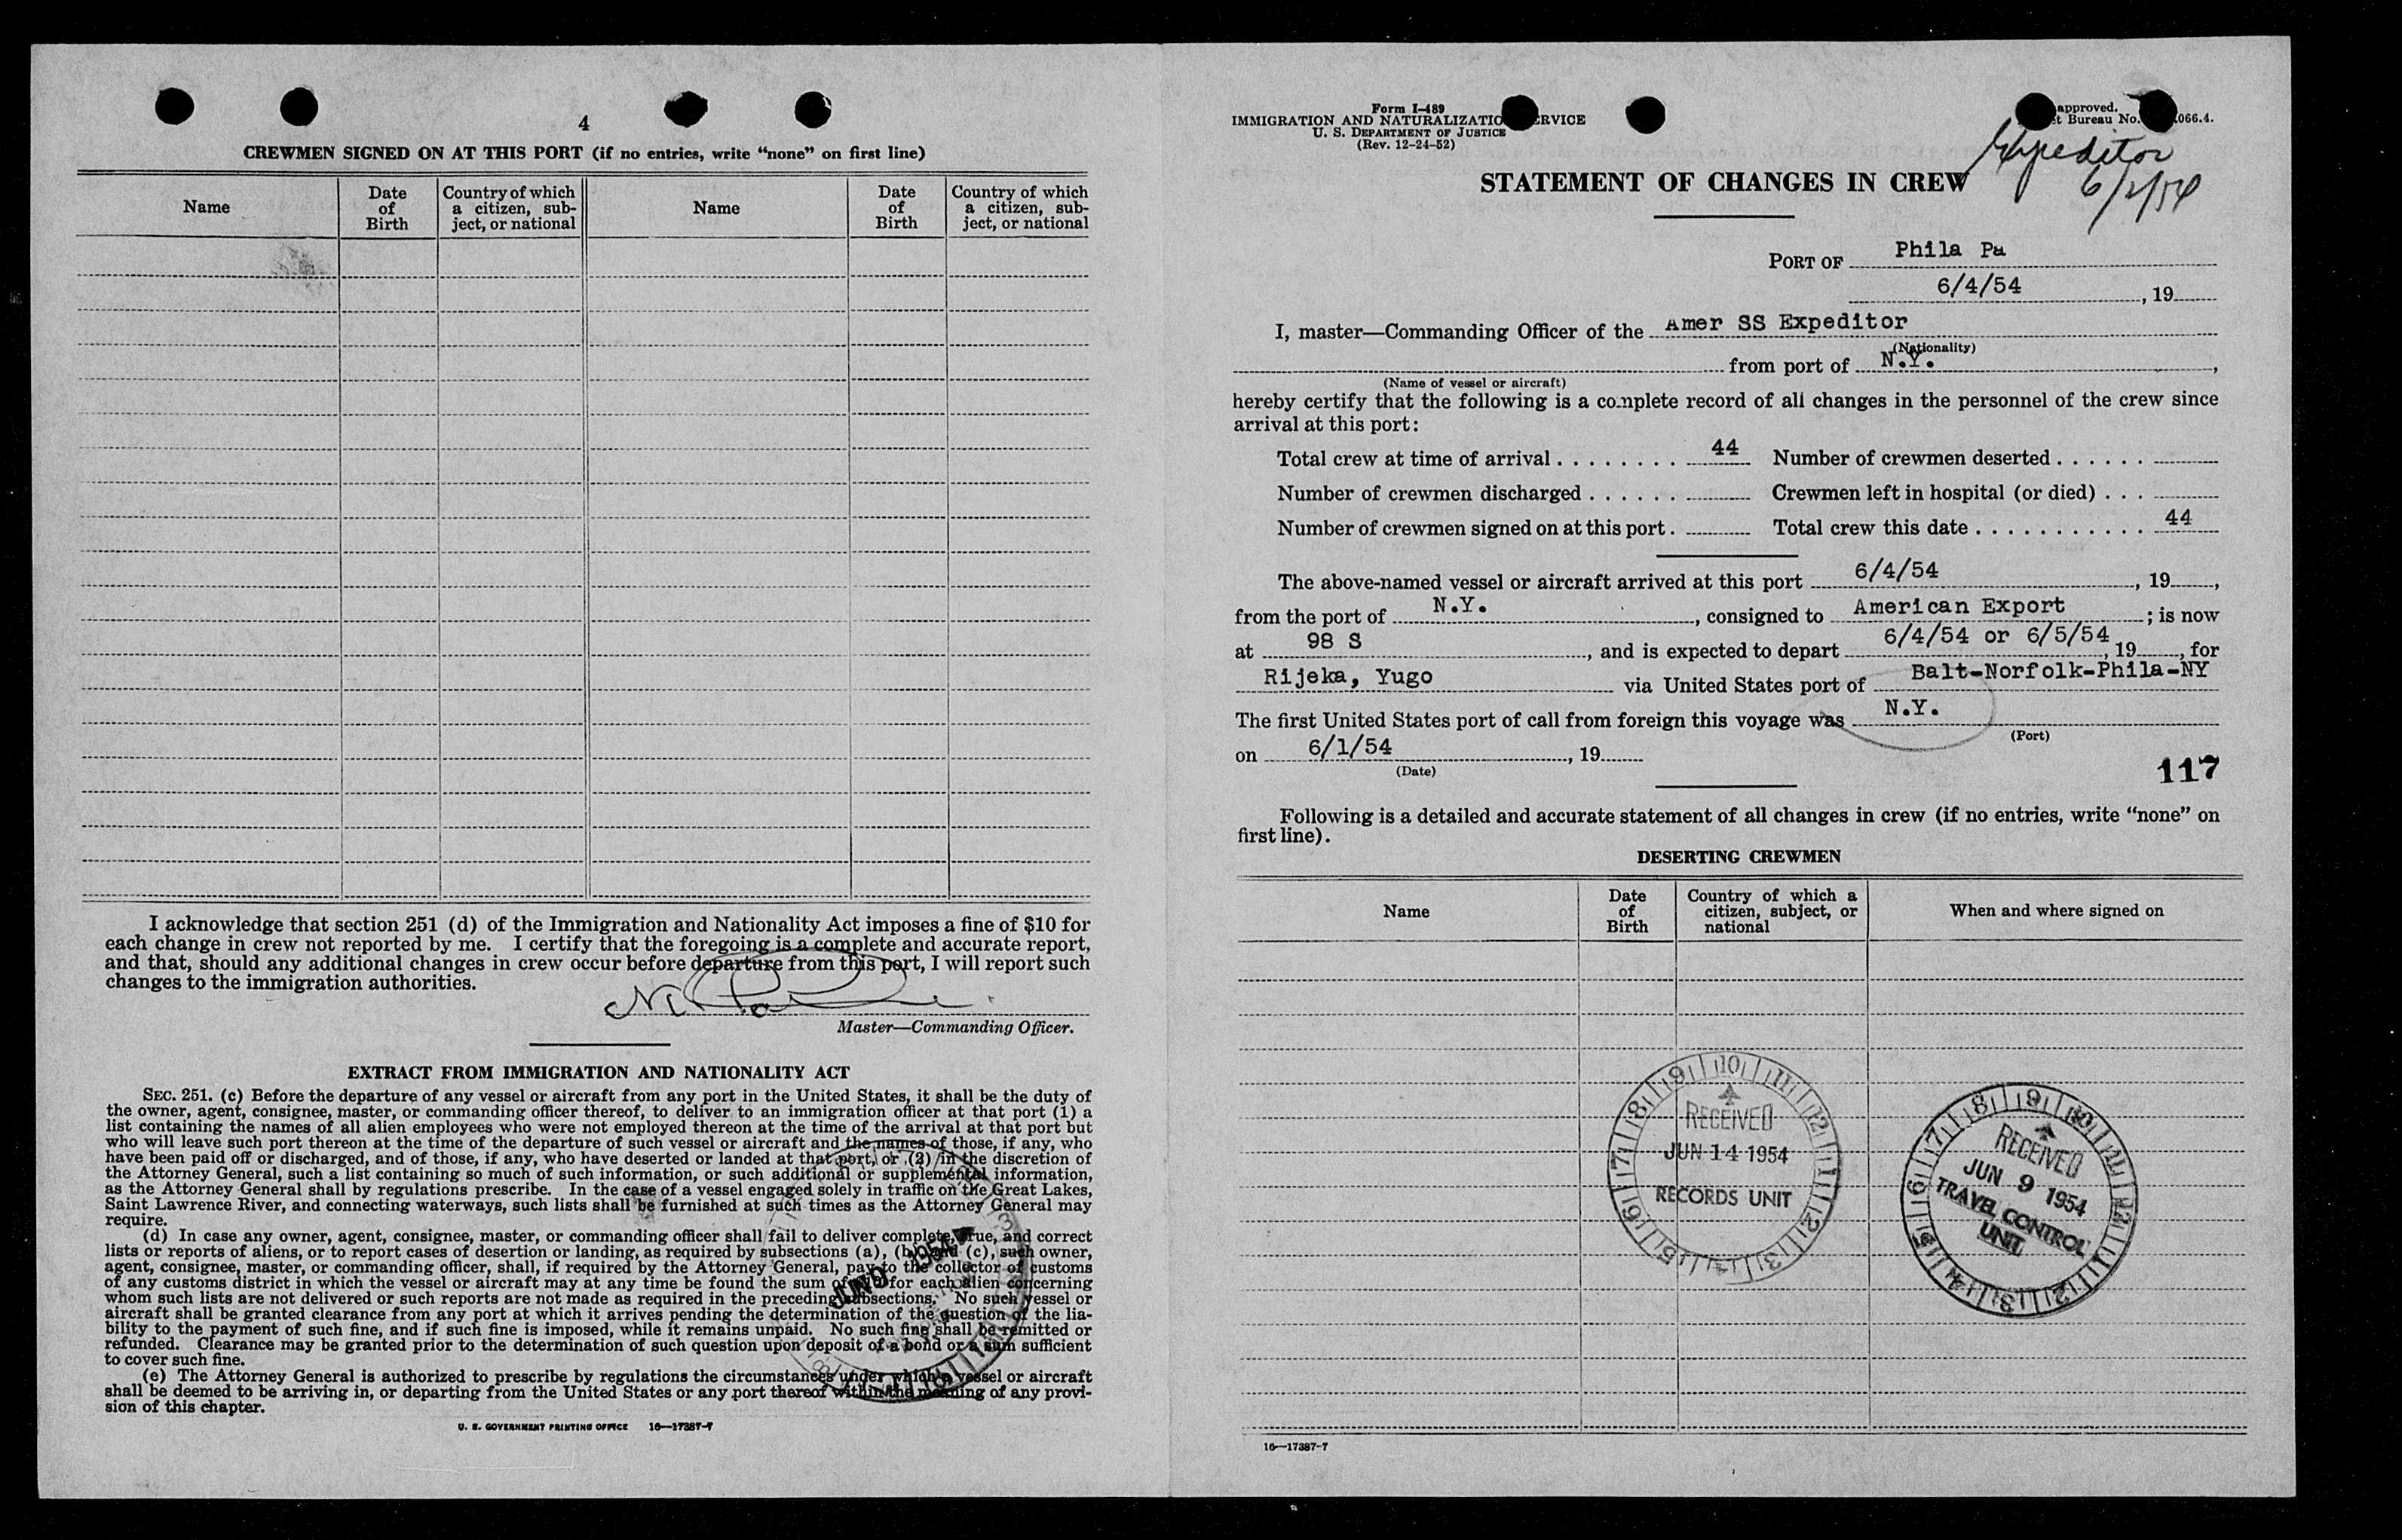 4
CREWMEN SIGNED ON AT THIS PORT (if no entries, write “none” on first line)
Name
Date of Birth
Country of which a citizen, sub-ject, or national
Name
Date of Birth
Country of which a citizen, sub-ject, or national
I acknowledge that section 251 (d) of the Immigration and Nationality Act imposes a fine of $10 for
each change in crew not reported by me. I certify that the foregoing is a complete and accurate report,
and that, should any additional changes in crew occur before departure from this port, I will report such
changes to the immigration authorities.
Master—Commanding Officer.
EXTRACT FROM IMMIGRATION AND NATIONALITY ACT
SEC. 251. (c) Before the departure of any vessel or aircraft from any port in the United States, it shall be the duty of
the owner, agent, consignee, master, or commanding officer thereof, to deliver to an immigration officer at that port (1) a
list containing the names of all alien employees who were not employed thereon at the time of the arrival at that port but
who will leave such port thereon at the time of the departure of such vessel or aircraft and the names of those, if any, who
have been paid off or discharged, and of those, if any, who have deserted or landed at that port, or (2) in the discretion of
the Attorney General, such a list containing so much of such information, or such additional or supplemental information,
as the Attorney General shall by regulations prescribe. In the case of a vessel engaged solely in traffic on the Great Lakes,
Saint Lawrence River, and connecting waterways, such lists shall be furnished at such times as the Attorney General may
require.
(d) In case any owner, agent, consignee, master, or commanding officer shall fail to deliver complete, true, and correct
lists or reports of aliens, or to report cases of desertion or landing, as required by subsections (a), (b), and (c), such owner,
agent, consignee, master, or commanding officer, shall, if required by the Attorney General, pay to the collector of customs
of any customs district in which the vessel or aircraft may at any time be found the sum of $10 for each alien concerning
whom such lists are not delivered or such reports are not made as required in the preceding subsections. No such vessel or
aircraft shall be granted clearance from any port at which it arrives pending the determination of the question of the lia-
bility to the payment of such fine, and if such fine is imposed, while it remains unpaid. No such fine shall be remitted or
refunded. Clearance may be granted prior to the determination of such question upon deposit of a bond or a sum sufficient
to cover such fine.
(e) The Attorney General is authorized to prescribe by regulations the circumstances under which a vessel or aircraft
shall be deemed to be arriving in, or departing from the United States or any port thereof within the meaning of any provi-
sion of this chapter.
U. S. GOVERNMENT PRINTING OFFICE 16—17387-7
Form I-489
IMMIGRATION AND NATURALIZATIO RVICE
U. S. DEPARTMENT OF JUSTICE
(Rev. 12-24-52)
approved.
t Bureau No. 066.4.
Expeditor
STATEMENT OF CHANGES IN CREW
PORT OF Phila Pa
6/4/54, 19
I, master—Commanding Officer of the Amer SS Expeditor
(Nationality)
from port of N.Y. ,
(Name of vessel or aircraft)
hereby certify that the following is a complete record of all changes in the personnel of the crew since
arrival at this port:
Total crew at time of arrival . . . . . . . . 44 Number of crewmen deserted . . . . . .
Number of crewmen discharged . . . . . . Crewmen left in hospital (or died) . . .
Number of crewmen signed on at this port . Total crew this date . . . . . . . . . . . 44
The above-named vessel or aircraft arrived at this port 6/4/54 , 19 ,
from the port of N.Y. , consigned to American Export ; is now
at 98 S , and is expected to depart 6/4/54 or 6/5/54 , 19 , for
Rijeka, Yugo via United States port of Balt-Norfolk-Phila-NY
The first United States port of call from foreign this voyage was N.Y.
(Port)
on 6/1/54 , 19
(Date)
117
Following is a detailed and accurate statement of all changes in crew (if no entries, write “none” on
first line).
DESERTING CREWMEN
Name
Date of Birth
Country of which a citizen, subject, or national
When and where signed on
RECEIVED
JUN 14 1954
RECORDS UNIT
RECEIVED
JUN 9 1954
TRAVEL CONTROL
UNIT
16—17387-7